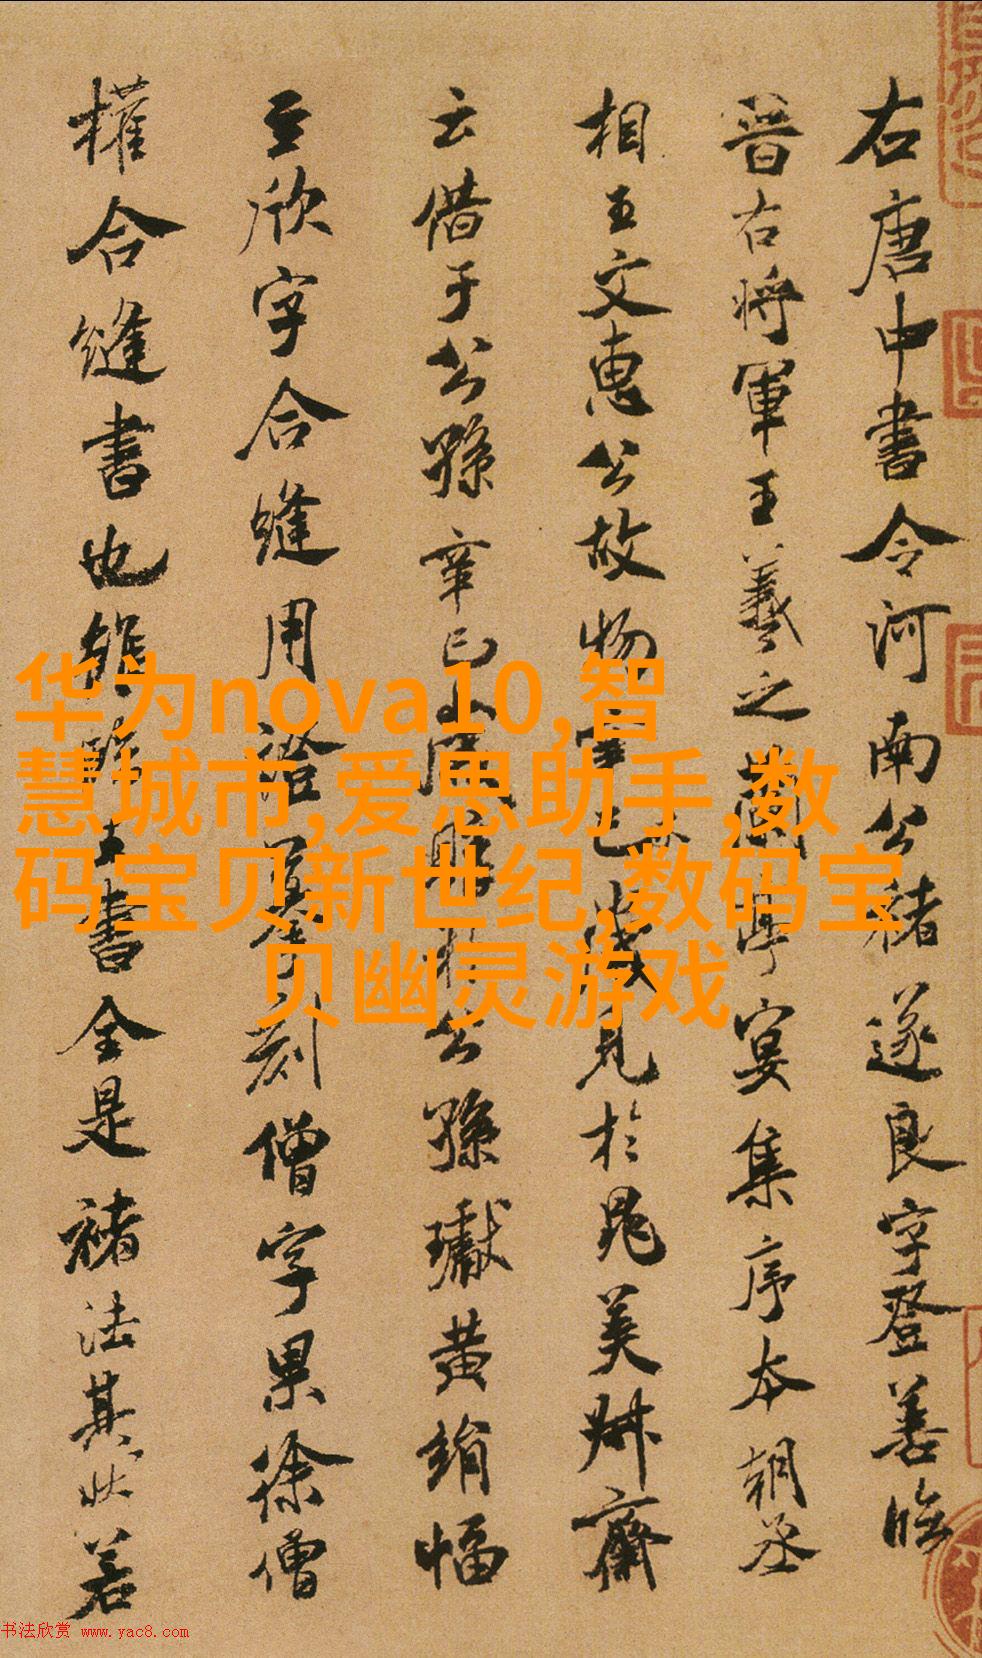 右唐中書令河南公褚遂良字登善臨
晉右將軍王羲之蘭亭宴集序本朝丞
相王文惠公故物辛巳歲見於晁美叔齋
云借于公孫辛巳 公孫瓛黄絹幅
至欣字合縫用證摹刻僧字果徐僧
權合縫書也雖臨王書全是褚法其狀若
华为nova10,智
慧城市,爱思助手,数
码宝贝新世纪,数码宝
贝幽灵游戏
书法欣赏 www.yac8.com